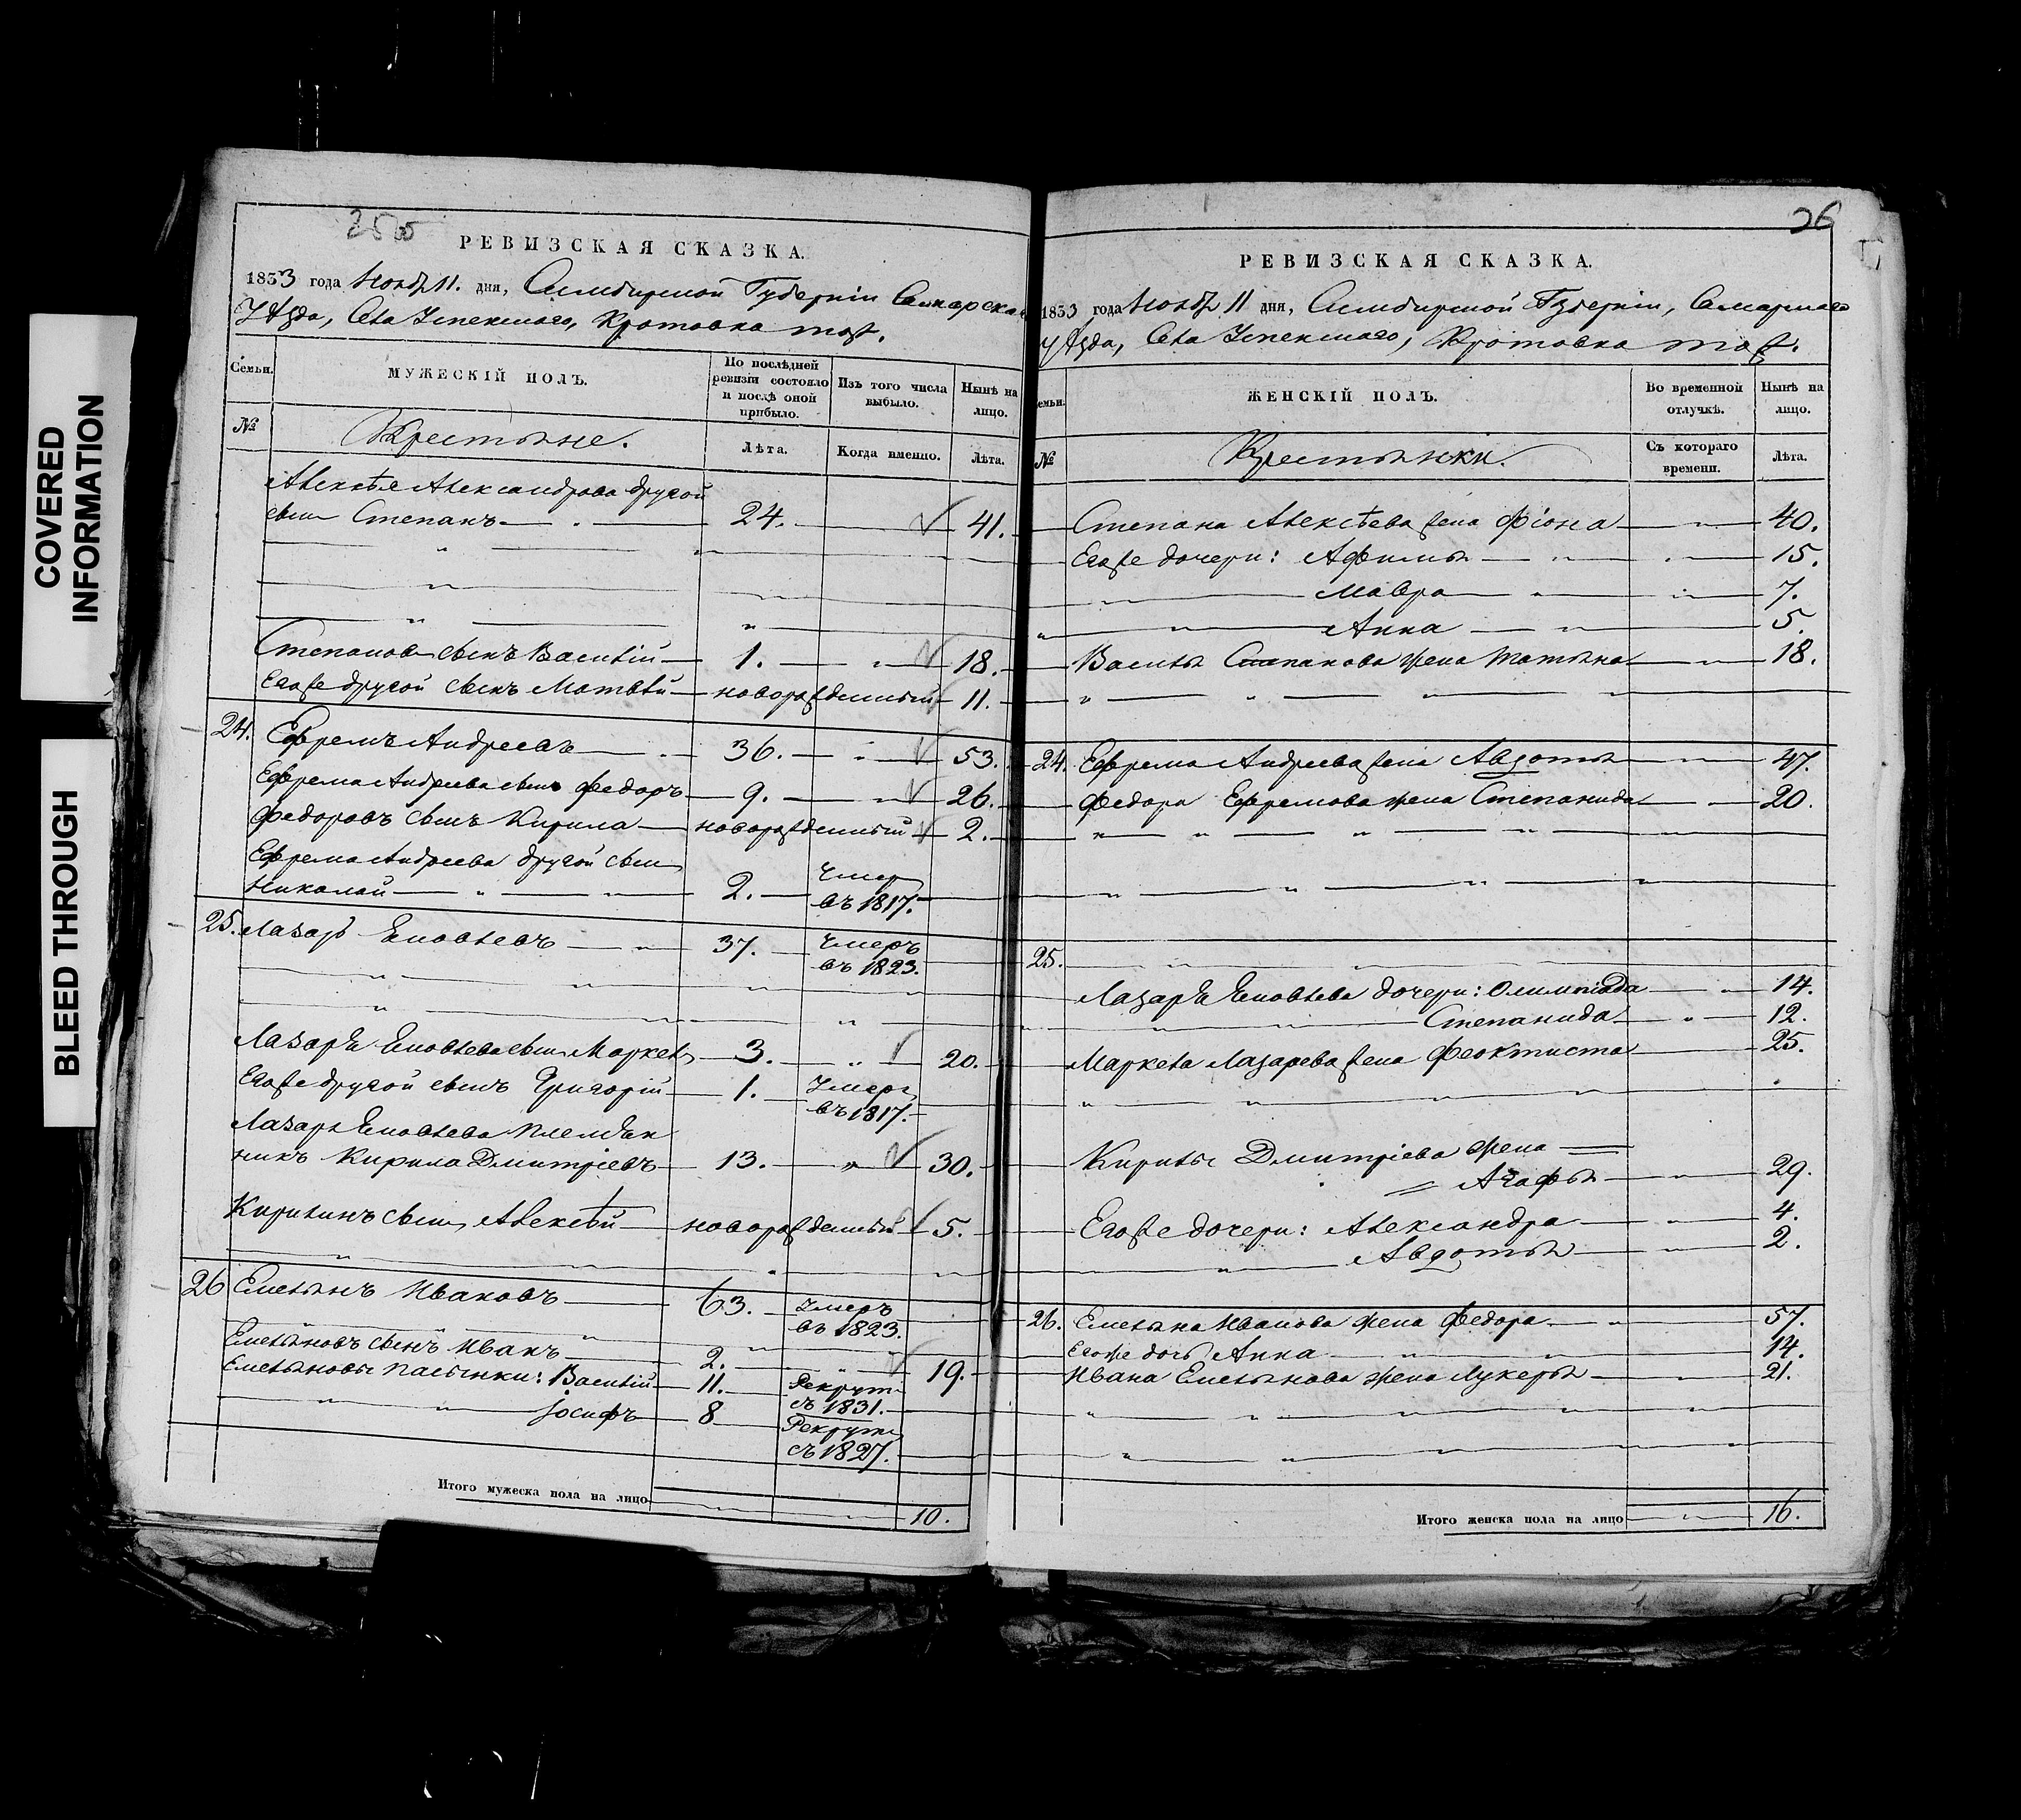 COVERED
INFORMATION
BLEED THROUGH
РЕВИЗСКАЯ СКАЗКА.
1833 года Ноябр 11. дня, Симбирской Губерніи Самарска
Уѣзда, Села Успенскаго, Кротовка тож.
Семьи.
МУЖЕСКІЙ ПОЛЪ.
По послѣдней ревизіи состояло и послѣ оной прибыло.
Изъ того числа выбыло.
Нынѣ на лицо.
№
Крестьяне.
Лѣта.
Когда именно.
Лѣта.
Алексѣя Александрова другой
сынъ Степанъ 24. 41.
Степановъ сынъ Василій 1. 18.
Егоже другой сынъ Матвѣй новорожденный 11.
24. Ефремъ Андреевъ 36. 53.
Ефрема Андреева сынъ Федоръ 9. 26.
Федоровъ сынъ Кирила новорожденный 2.
Ефрема Андреева другой сынъ
Николай 2. Умер въ 1817.
25. Лазарь 37. Умеръ въ 1823.
Лазаря сынъ Маркелъ 3. 20.
Егоже другой сынъ Григорій 1. Умеръ въ 1817.
Лазаря племян
никъ Кирила Дмитріевъ 13. 30.
Кирилинъ сынъ Алексѣй новорожденный 5.
26 Емельянъ Ивановъ 63. Умеръ въ 1823.
Емельяновъ сынъ Иванъ 2. 19.
Емельяновы пасынки: Василій 11. Рекрут съ 1831.
Іосифъ 8 Рекрут съ 1827.
Итого мужеска пола на лицо 10.
26
РЕВИЗСКАЯ СКАЗКА.
1833 года Ноябр 11 дня, Симбирской Губерніи, Самарскаго
Уѣзда, Села Успенскаго, Кротовка тож.
емьи.
ЖЕНСКІЙ ПОЛЪ.
Во временной отлучкѣ.
Нынѣ на лицо.
№
Крестьянки.
Съ котораго времени.
Лѣта.
Степана Алексѣева жена Фіона 40.
Егоже дочери: Афимья 15.
Мавра 7.
Анна 5.
Василья Степанова жена Татьяна 18.
24. Ефрема Андреева жена Авдотья 47.
Федора Ефремова жена Степанида 20.
25.
Лазаря дочери: Олимпіада 14.
Степанида 12.
Маркела Лазарева жена Феоктиста 25.
Кирилы Дмитріева жена
Агафья 29.
Егоже дочери: Александра 4.
Авдотья 2.
26. Емельяна Иванова жена Федора 57.
Егоже дочь Анна 14.
Ивана Емельянова жена Лукерья 21.
Итого женска пола на лицо 16.